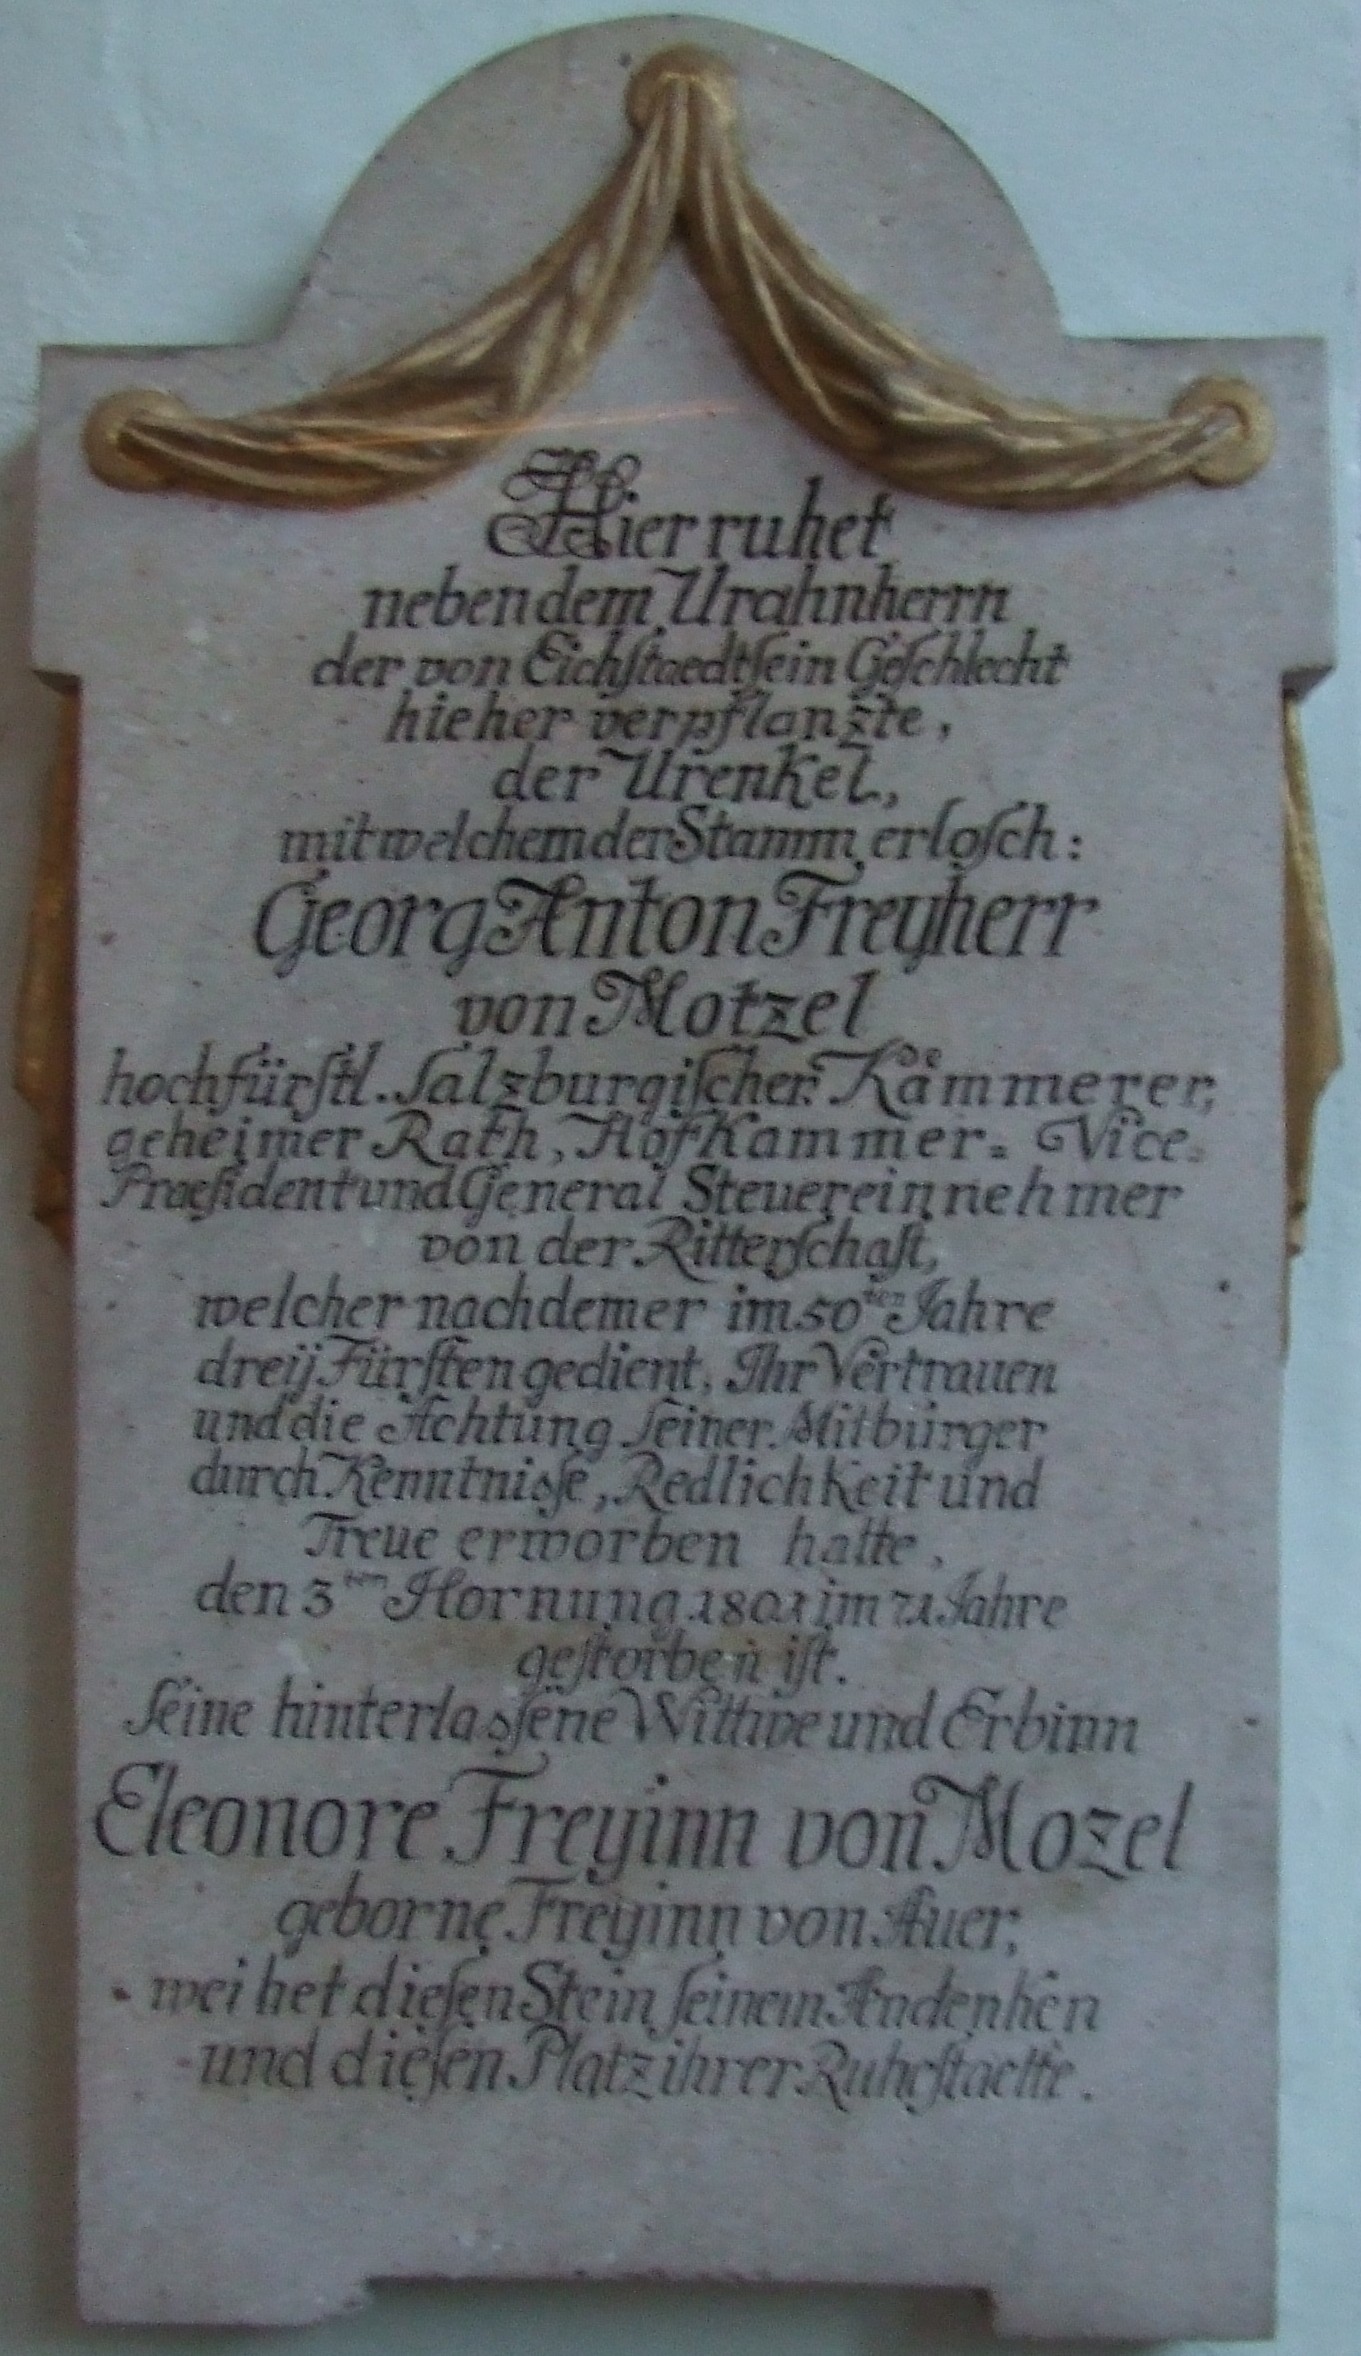 Hier ruhet
neben dem Urahnherrn
der von Eichſtaedt ſein Geſchlecht
hieher verpflanzte,
der Urenkel,
mit welchem der Stamm erloſch:
Georg Anton Freyherr
von Motzel
hochfürſtl. Salzburgiſcher Kämmerer,
geheimer Rath, Hofkammer= Vice=
Praeſident und General Steuereinnehmer
von der Ritterſchaft,
welcher nachdem er im 50ten Jahre
dreÿ Fürſten gedient, Ihr Vertrauen
und die Achtung ſeiner Mitbürger
durch Kenntnisſe, Redlichkeit und
Treue erworben hatte,
den 3ten Hornung 1801 im 71 Jahre
geſtorben iſt.
Seine hinterlasſene Wittwe und Erbinn
Eleonore Freyinn von Mozel
geborne Freyinn von Auer,
weihet dieſen Stein ſeinem Andenken
und dieſen Platz ihrer Ruheſtaette.